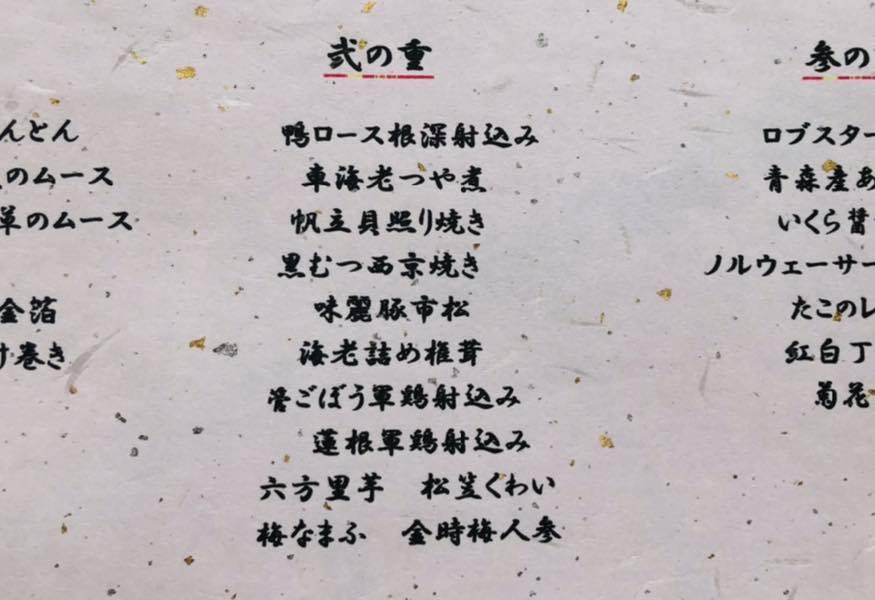 んとん
のムース
草のムース
金箔
け巻き
弐の重
鴨ロース根深射込み
車海老つや煮
帆立貝照り焼き
黒むつ西京焼き
味麗豚市松
海老詰め椎茸
管ごぼう軍鶏射込み
蓮根軍鶏射込み
六方里芋　松笠くわい
梅なまふ　金時梅人参
参の
ロブスター
青森産あ
いくら醤
ノルウェーサー
たこのレ
紅白丁
菊花